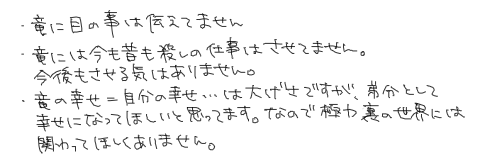 ・竜に目の事は伝えてません
・竜には今も昔も殺しの仕事はさせてません。
今後もさせる気はありません。
・竜の幸せ=自分の幸せ…は大げせですが、弟分として
幸せになってほしいと思ってます。なので極力裏の世界には
関わってほしくありません。